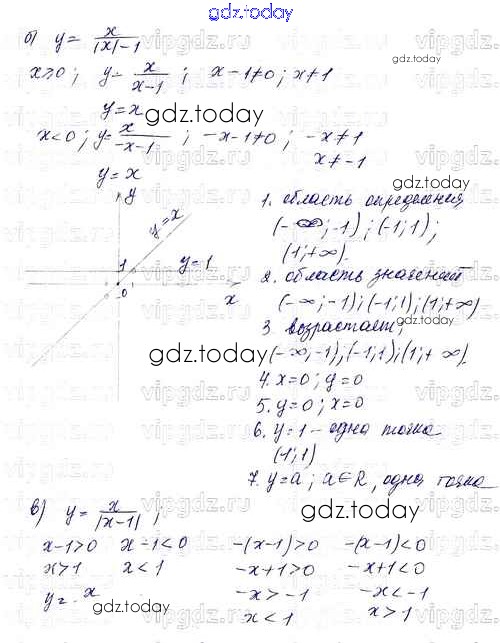 gdz.today
б) y = x/(|x|-1)
x≥0; y = x/(x-1); x-1≠0; x≠1
y=x
gdz.today
x<0; y = x/(-x-1); -x-1≠0; -x≠1
x≠-1
y=x
gdz.today
y
y=x
1
y=1
0
x
1. область определения
(-∞;-1);(-1;1);
(1;+∞).
2. область значений
(-∞;-1);(-1;1);(1;+∞)
3. возрастает;
(-∞;-1),(-1;1);(1;+∞).
gdz.today
4. x=0; y=0
5. y=0; x=0
6. y=1 - одна точка
(1;1)
7. y=a; a∈R, одна точка
gdz.today
в) y = x/|x-1|;
x-1>0 x-1<0 -(x-1)>0 -(x-1)<0
x>1 x<1 -x+1>0 -x+1<0
y = x -x>-1 -x<-1
x<1 x>1
gdz.today
gdz.today
vipgdz.ru